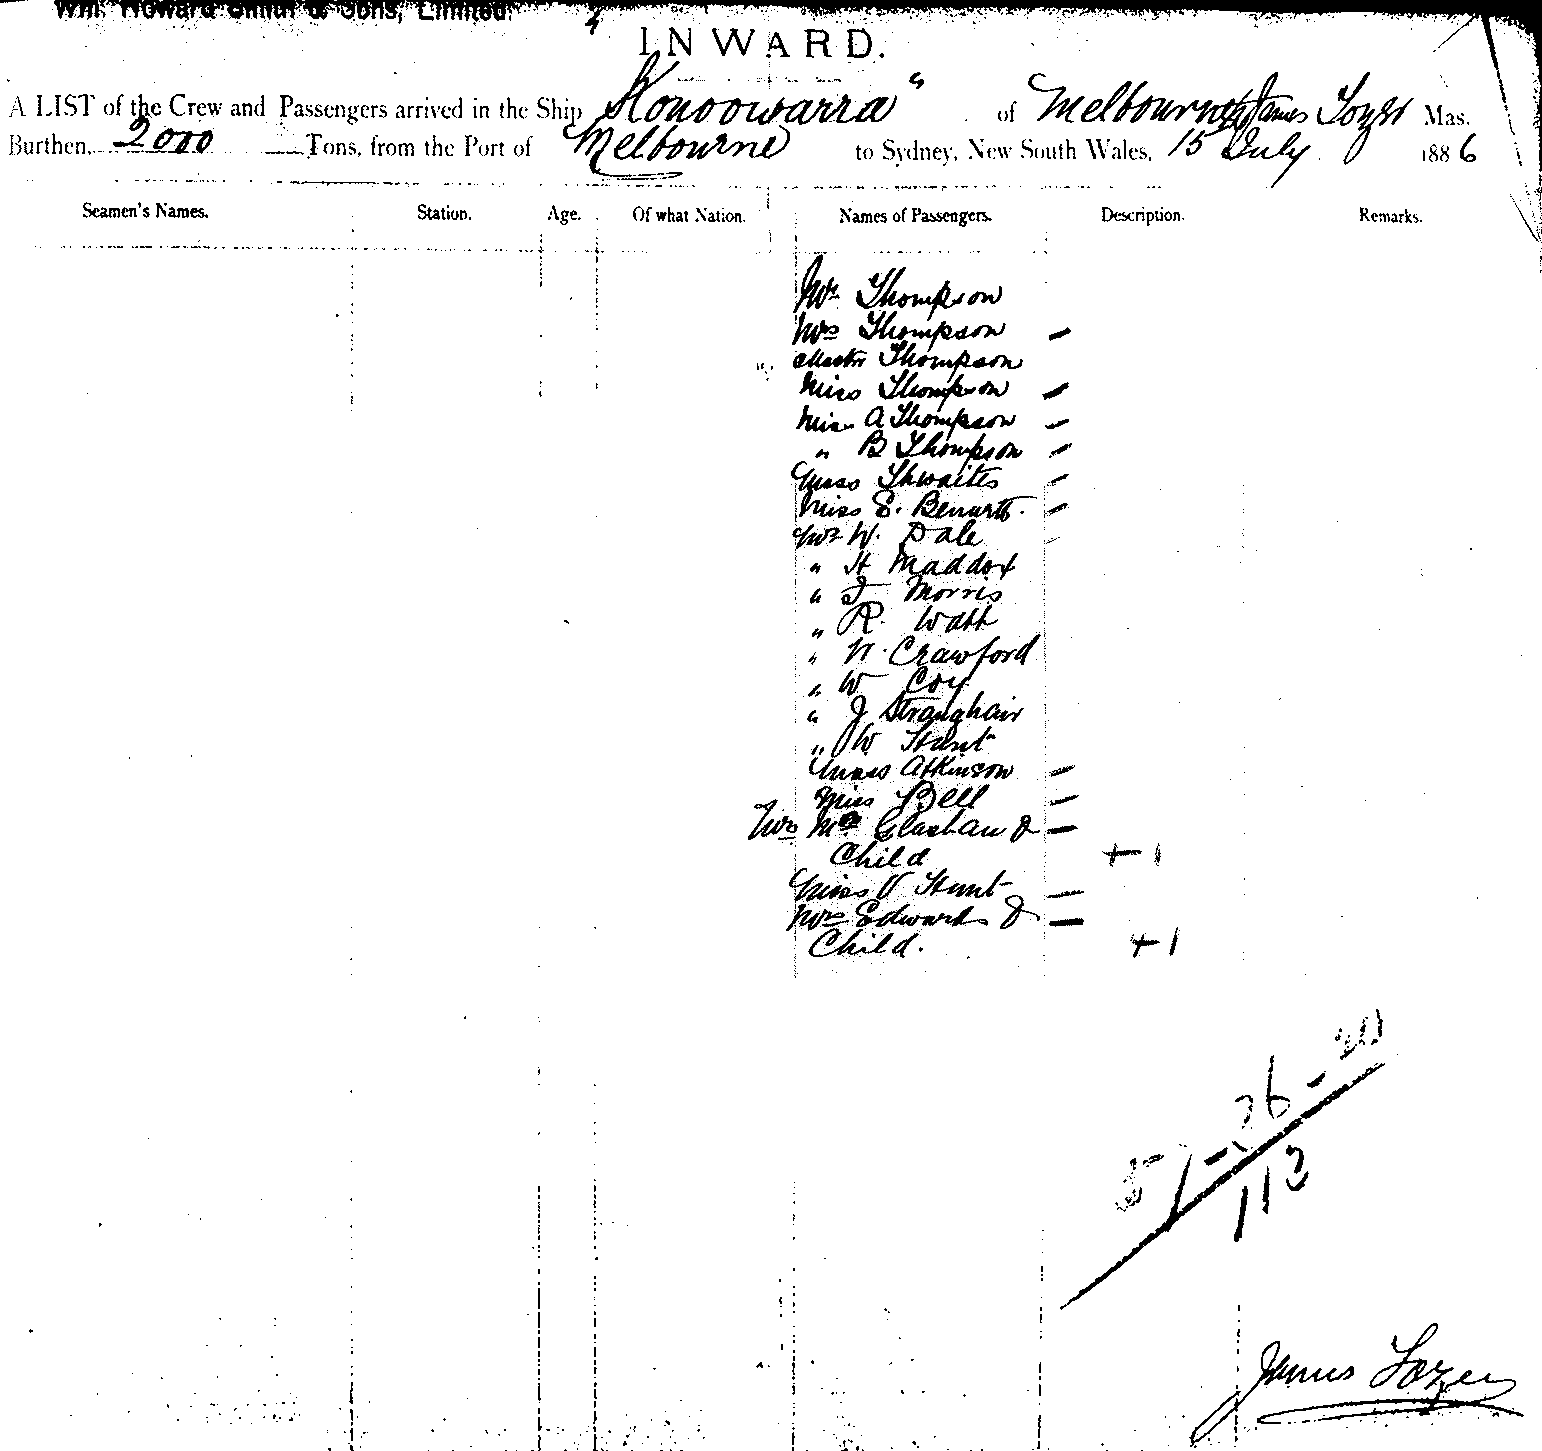 Wm. Howard Smith & Sons, Limited.
INWARD.
A LIST of the Crew and Passengers arrived in the Ship "Konoowarra" of Melbourne James Tozer Mas.
Burthen, 2000 Tons, from the Port of Melbourne to Sydney, New South Wales, 15 July 1886
Seamen's Names. Station. Age. Of what Nation. Names of Passengers. Description. Remarks.
Mr Thompson
Mrs Thompson -
Master Thompson
Miss Thompson -
Miss A Thompson -
" B Thompson -
Miss Thwaites -
Miss E. -
Mr W. Dale
" H Maddox
" J Morris
" R. Watt
" W. Crawford
" W Coy
" J Straughair
" W Hunt
Miss Atkinson -
Miss Bell -
Mrs Mc Glashan & -
Child + 1
Miss V Hunt -
Mrs Edwards & -
Child. + 1
26 -
51 -
113
James Tozer